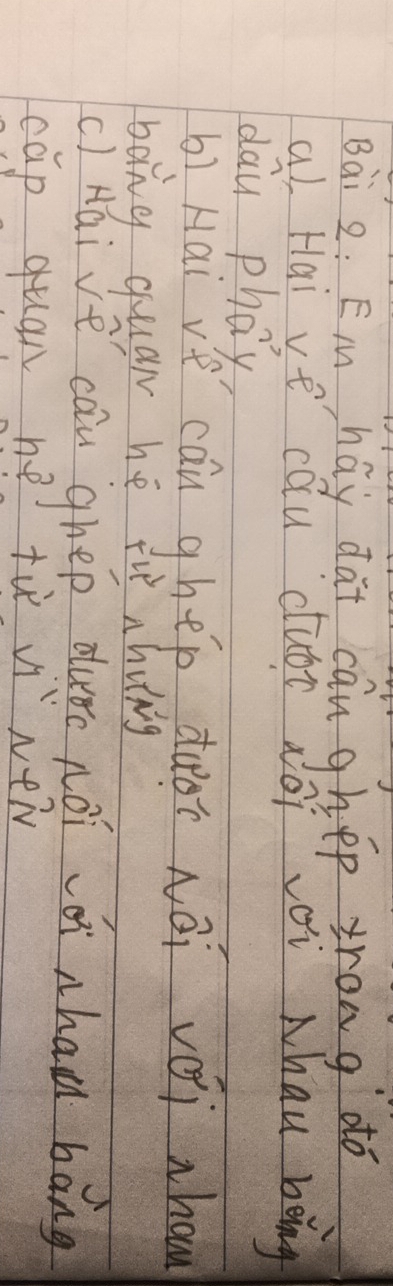 Bài 2: Em hãy đặt câu ghép trong đó
a) Hai vế câu được nối với nhau bằng
dấu phẩy
b) Hai vế câu ghép được nối với nhau
bằng quan hệ từ nhưng
c) Hai vế câu ghép được nối với nhau bằng
cặp quan hệ từ vì nên